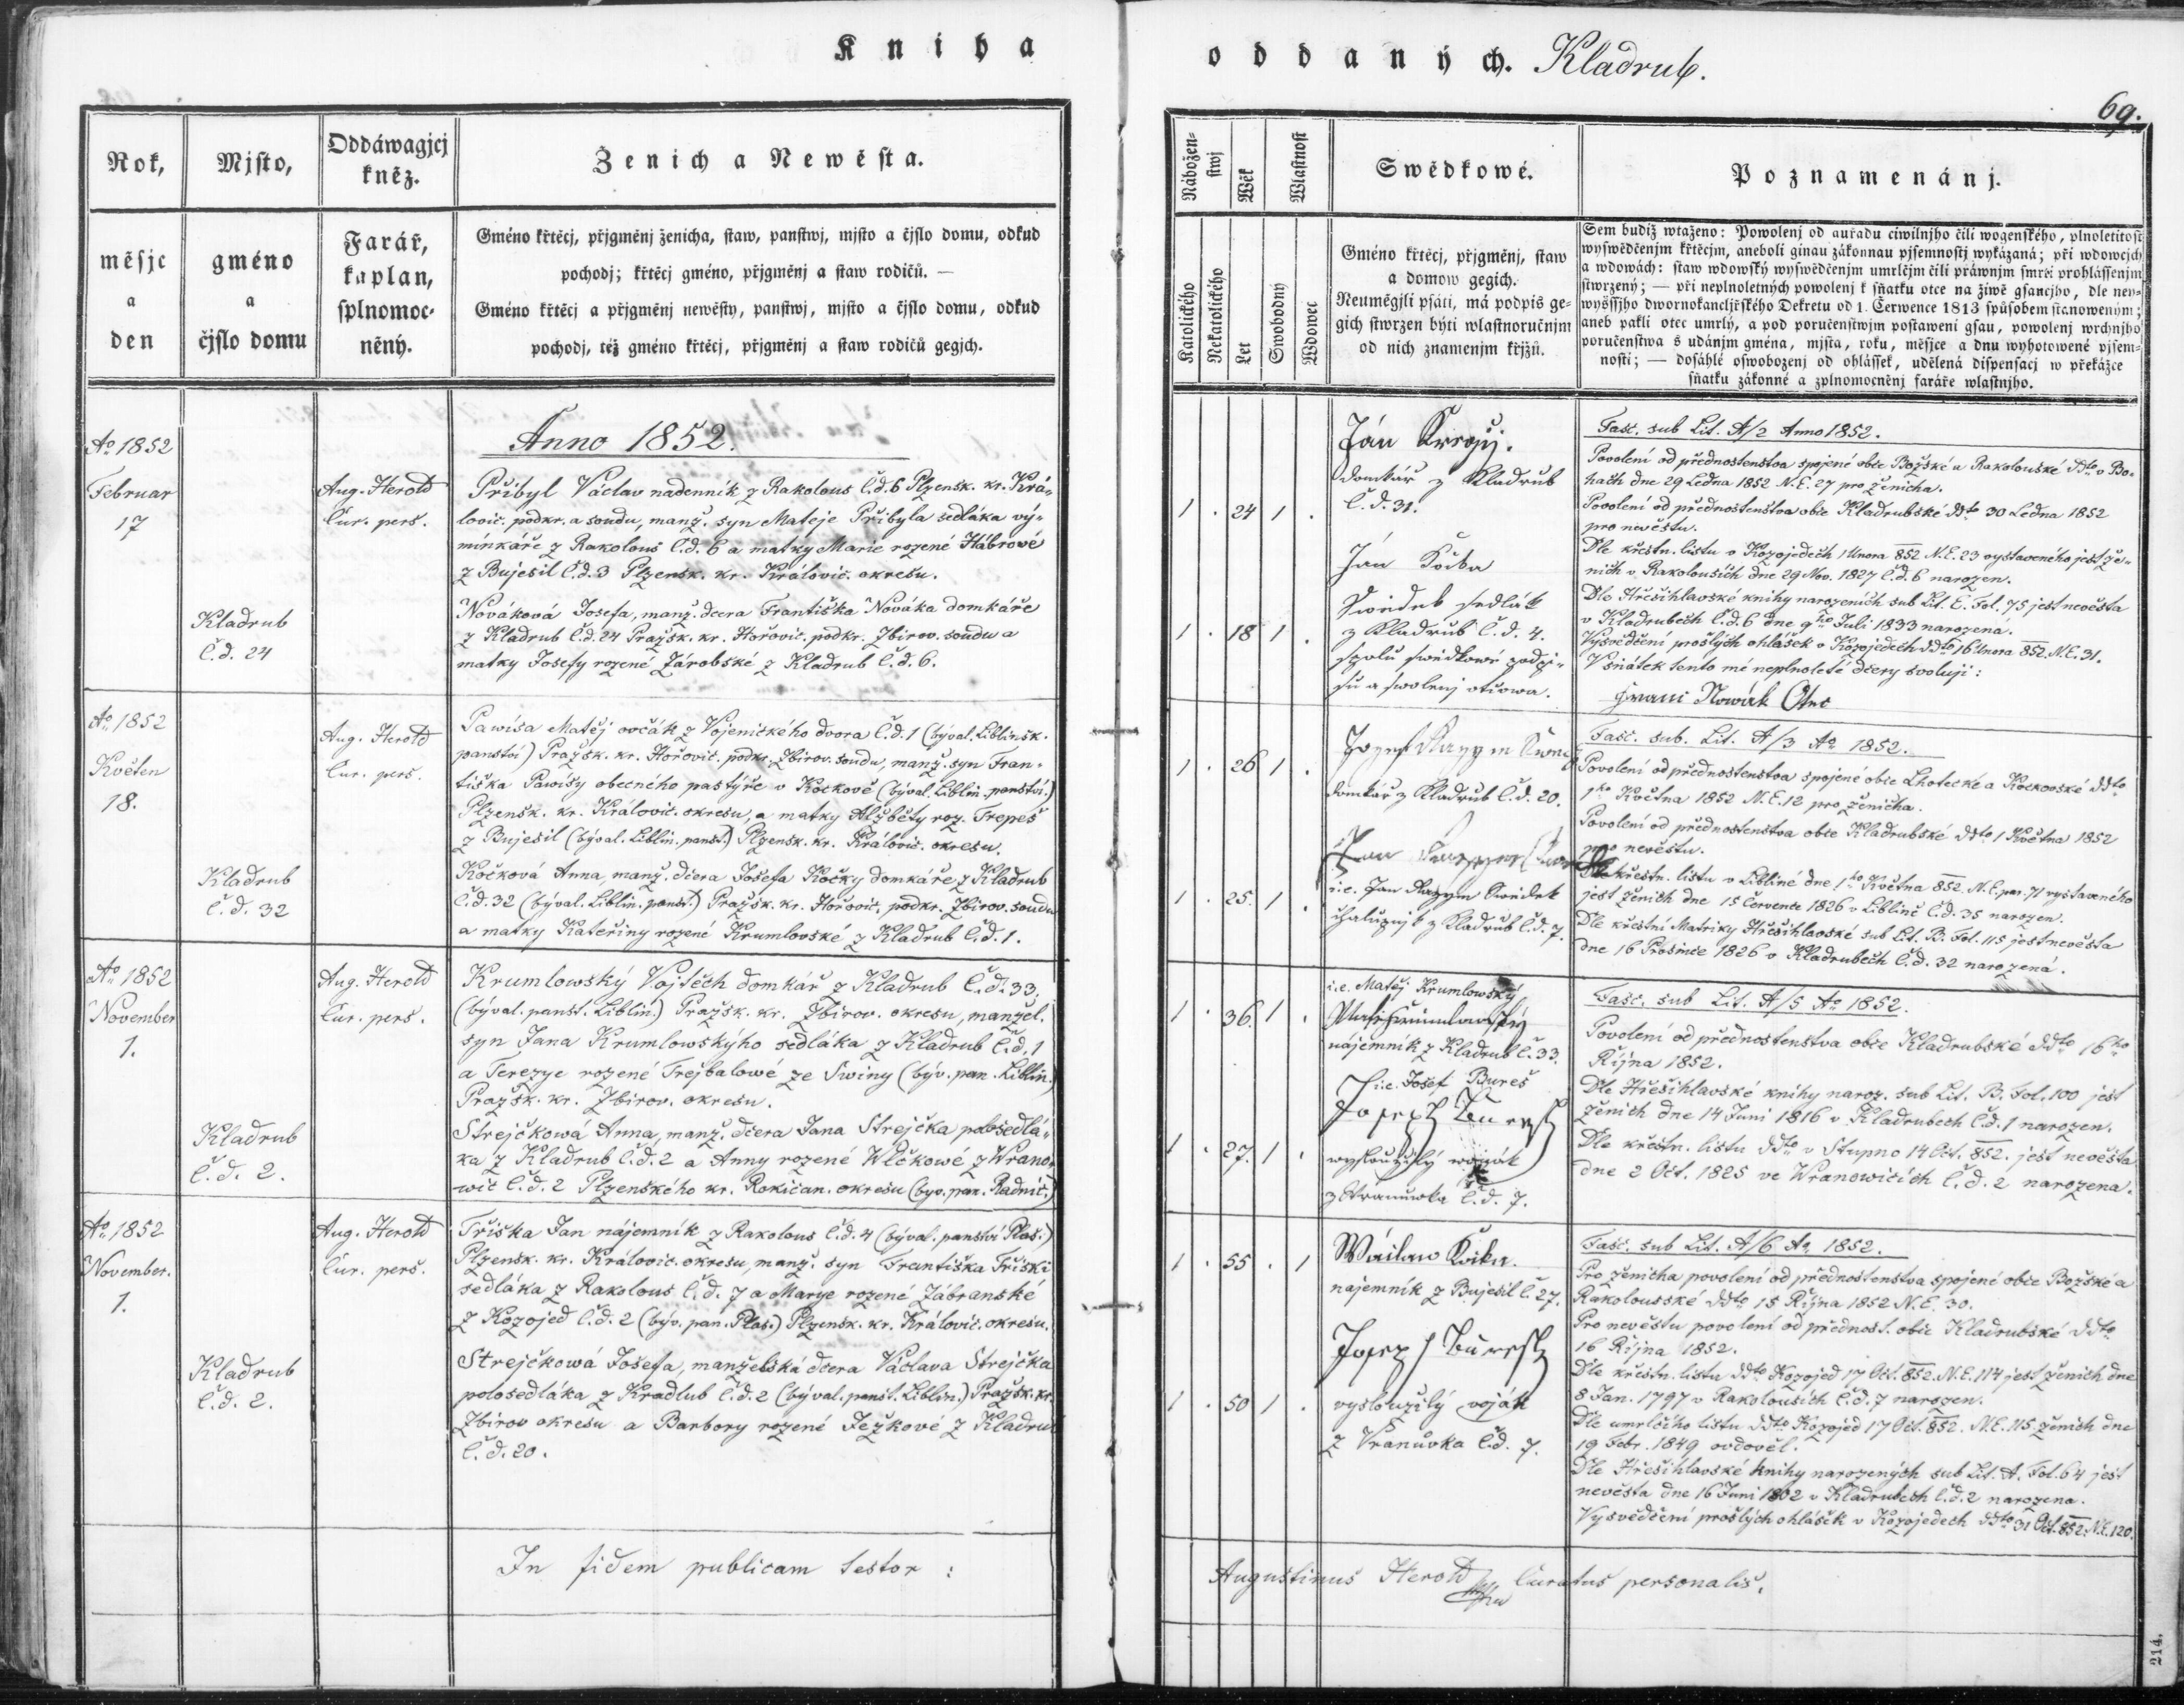 Kniha
Rok,
měsjc
a
den
Mjsto,
gméno
a
čjslo domu
Oddáwagjcj
kněz.
Farář,
kaplan,
splnomoc-
něný.
Ženich a Newěsta.
Gméno křtěcj, přjgmenj ženicha, staw, panstwj, mjsto a čjslo domu, odkud
pochodj; křtěcj gméno, přjgměnj a staw rodičů. —
Gméno křtěcj a přjgměnj newěsty, panstwj, mjsto a čjslo domu, odkud
pochodj, též gméno křtěcj, přjgměnj a staw rodičů gegjch.
Anno 1852.
Ao 1852
Februar
17
Aug. Herold
Cur. pers.
Přibyl Václav nadenník z Rakolous č.d. 6 Plzensk. kr. Krá-
lovic. podkr. a soudu, manž. syn Matěje Přibyla sedláka vý-
minkáře z Rakolous č.d. 6 a matky Marie rozené Hábrové
z Bujesil č.d. 3 Plzensk. kr. Královic. okresu.
Kladrub
č.d. 24
Nováková Josefa, manž. dcera Františka Nováka domkáře
z Kladrub č.d. 24 Pražsk. kr. Hořovic. podkr. Zbirov. soudu a
matky Josefy rozené Zárobské z Kladrub č.d. 6.
Ao 1852
Květen
18.
Aug. Herold
Cur. pers.
Pawisa Matěj ovčák z Vojenického dvora č.d. 1 (býval. Liblinsk.
panství) Pražsk. kr. Hořovic. podkr. Zbirov. soudu, manž. syn Fran-
tiška Pawisy obecného pastýře v Kočkově (býval. Liblin. panství.)
Plzensk. kr. Královic. okresu, a matky Alžběty roz. Trepeš
z Bujesil (býval. Liblin. panst.) Plzensk. kr. Královic. okresu.
Kladrub
č.d. 32
Kočková Anna, manž. dcera Josefa Kočky domkáře z Kladrub
č.d. 32 (býval. Liblin. panst.) Pražsk. kr. Hořovic. podkr. Zbirov. soudu
a matky Kateřiny rozené Krumlovské z Kladrub č.d. 1.
Ao 1852
November
1.
Aug. Herold
Cur. pers.
Krumlowský Vojtěch domkář z Kladrub č.d. 33.
(býval. panst. Liblin.) Pražsk. kr. Zbirov. okresu, manžel.
syn Jana Krumlowskýho sedláka z Kladrub č.d. 1
a Terezye rozené Trejbalowé ze Swiny (býv. pan. Liblin.)
Pražsk. kr. Zbirov. okresu.
Kladrub
č.d. 2.
Strejčkowá Anna, manž. dcera Jana Strejčka polosedlá-
ka z Kladrub č.d. 2 a Anny rozené Wlčkowé z Wrano-
wic č.d. 2 Plzenského kr. Rokičan. okresu (byv. pan. Radnic.)
Ao 1852
November.
1.
Aug. Herold
Cur. pers.
Tříska Jan nájemník z Rakolous č.d. 4 (býval. panství Plas.)
Plzensk. kr. Královic. okresu, manž. syn Františka Třísky
sedláka z Rakolous č.d. 7 a Marye rozené Zábranské
z Kozojed č.d. 2 (býv. pan. Plas.) Plzensk. kr. Královic. okresu.
Kladrub
č.d. 2.
Strejčkowá Josefa, manželská dcera Václava Strejčka
polosedláka z Kradlub č.d. 2 (býval. panst. Liblin.) Pražsk. kr.
Zbirov okresu a Barbory rozené Ježkové z Kladrub
č.d. 20.
In fidem publicam testor :
oddaných. Kladrub.
69.
Náboženstwj
Katolického
Nekatolického
Wěk
Let
Wlastnost
Swobodný
Wdowec
Swědkowé.
Gméno křtěcj, přjgměnj, staw
a domow gegich.
Neuměgjli psáti, má podpis ge-
gich stwrzen býti wlastnoručnjm
od nich znamenjm křjžů.
Poznamenánj.
Sem budiž wtaženo: Powolenj od auřadu ciwilnjho čili wogenského, plnoletitost
wyswědčenjm křtěcjm, aneboli ginau zákonnau pjsemnostj wykázaná; při wdowcjch
a wdowách: staw wdowský wyswědčenjm umrlčjm čili práwnjm smrti prohlássenjm
stwrzený; — při neplnoletných powolenj k sňatku otce na žiwě gsaucjho, dle ney-
wyššjho dwornokancljřského Dekretu od 1. Čerwence 1813 spůsobem stanoweným;
aneb pakli otec umrlý, a pod poručenstwjm postaweni gsau, powolenj wrchnjho
poručenstwa s udánjm gména, mjsta, roku, měsjce a dnu wyhotowené pjsem-
nosti; — dosáhlé oswobozenj od ohlássek, udělená dispensacj w překážce
sňatku zákonné a zplnomocněnj faráře wlastnjho.
1 . 24 1 .
1 . 18 1 .
Ján
domkář z Kladrub
č.d. 31.
Ján Kočka
Swědek sedlák
z Kladrub č.d. 4.
spolu swědkowé podpi-
su a swolenj otcowa.
Fasc. sub Lit. A/2 Anno 1852.
Povolení od přednostenstva spojené obce Božské a Rakolouské ddto v Bo-
hach dne 29 Ledna 1852 N.E. 27 pro ženicha.
Povolení od přednostenstva obce Kladrubské ddto 30 Ledna 1852
pro nevěstu.
Dle křestn. listu v Kozojedech 1 Unora 852 N.E. 23 vystaveného jest že-
nich v Rakolousích dne 29 Nov. 1827 č.d. 6 narozen.
Dle Hřešihlavské knihy narozeních sub Lit. E. Fol. 75 jest nevěsta
v Kladrubech č.d. 6 dne 9ho Juli 1833 narozená.
Vysvědčení prošlých ohlášek v Kozojedech ddto 16 Unora 852. N.E. 31.
V sňátek tento mé neplnoleté dcery svoluji:
Franc Nowák Otec
1 . 26 1 .
1 . 25. 1 .
domkář z Kladrub č.d. 20.
i.e. Jan Swědek
chalupnjk z Kladrub č.d. 7.
Fasc. sub. Lit. A/3 Ao 1852.
Povolení od přednostenstva spojené obce Lhotecké a Kočkovské ddto
1ho Května 1852 N.E. 12 pro ženicha.
Povolení od přednostenstva obce Kladrubské ddto 1 Května 1852
pro nevěstu.
Dle křestn. listu v Liblině dne 1ho Května 852. N.E. par. 71 vystaveného
jest ženich dne 15 Července 1826 v Liblině č.d. 35 narozen.
Dle křestní Matriky Hřešihlavské sub Lit. B. Fol. 115 jest nevěsta
dne 16 Prosince 1826 v Kladrubech č.d. 32 narozená.
1 . 36. 1 .
1 . 27. 1 .
i.e. Matěj Krumlowský
nájemník z Kladrub č. 33.
i.e. Josef Bureš
Joseph Buresch
wysloužilý woják
z Wranuwka č.d. 7.
Fasc. sub Lit. A/5 Ao 1852.
Povolení od přednostenstva obce Kladrubské ddto 16ho
Října 1852.
Dle Hřešihlavské knihy naroz. sub Lit. B. Fol. 100 jest
ženich dne 14 Juni 1816 v Kladrubech č.d. 1 narozen.
Dle křestn. listu ddto v Stupno 14 Oct. 852. jest nevěsta
dne 2 Oct. 1825 ve Wranowicích č.d. 2 narozena.
1 . 55 . 1
1 . 50 1 .
Wáclaw Kočka.
najemník z Bujesil č. 27.
Josep Buresch
vysloužilý voják
z Vranuvka č.d. 7.
Fasc. sub Lit. A/6 Ao 1852.
Pro ženicha povolení od přednostenstva spojené obce Božské a
Rakolousské ddto 15 Října 1852 N.E. 30.
Pro nevěstu povolení od přednost. obce Kladrubské ddto
16 Října 1852.
Dle křestn. listu ddto Kozojed 17 Oct. 852. N.E. 114 jest ženich dne
8 Jan. 1797 v Rakolousích č.d. 7 narozen.
Dle umrlčího listu ddto Kozojed 17 Oct. 852. N.E. 115 ženich dne
19 Febr. 1849 ovdověl.
Dle Hřešihlavské knihy narozených sub Lit. A. Fol. 64 jest
nevěsta dne 16 Juni 1802 v Kladrubech č.d. 2 narozena.
Vysvědčení prošlých ohlášek v Kozojedech ddto 31 Oct. 852. N.E. 120.
Augustinus Herold Curatus personalis.
214.